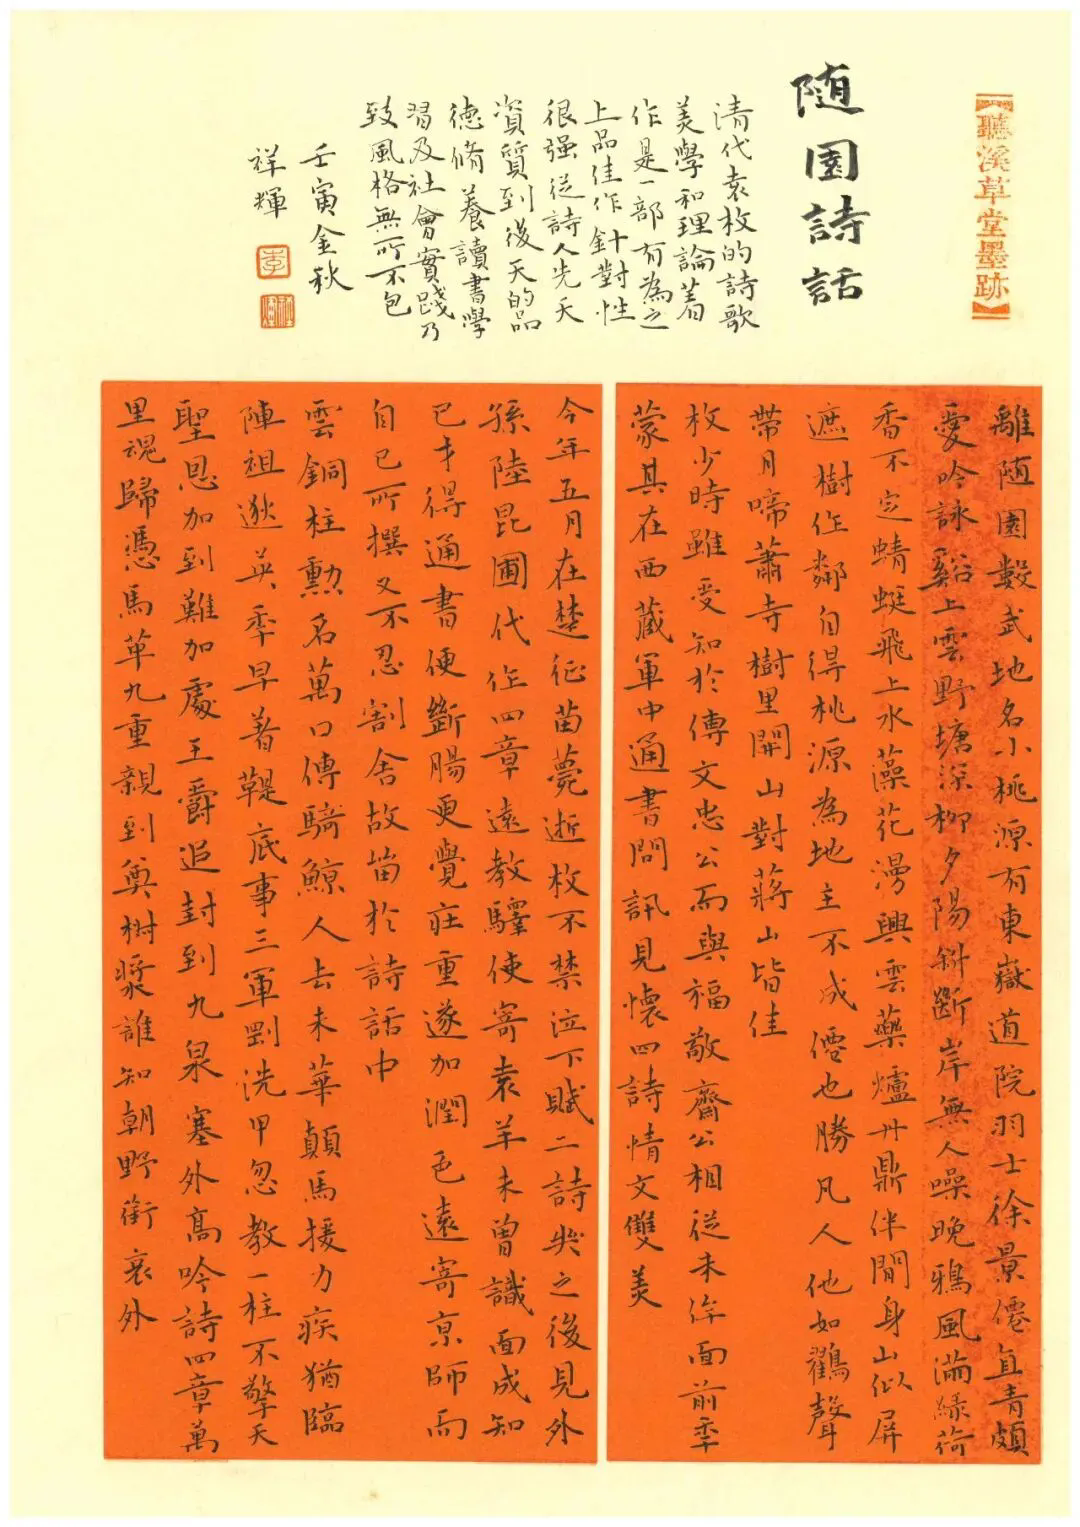 【聽溪草堂墨跡】
随園詩話
清代袁枚的詩歌
美學和理論着
作是一部有為之
上品佳作針對性
很强従詩人先天
資質到後天的品
德脩養讀書學
習及社會實踐乃
致風格無所不包
壬寅金秋
祥輝
離随園數武地名小桃源有東嶽道院羽士徐景僊直青頗
愛吟詠谿上雲野塘深柳夕陽斜斷岸無人噪晚鴉風滿緑荷
香不定蜻蜓飛上水藻花漫興雲藥爐丹鼎伴閒身山似屏
遮樹作鄰自得桃源為地主不成僊也勝凡人他如鸛聲
帶月啼蕭寺樹里開山對蔣山皆佳
枚少時雖受知於傅文忠公而與福敬齋公相従未侔面前季
蒙其在西藏軍中通書問訊見懷四詩情文雙美
今年五月在楚征苗薨逝枚不禁泣下賦二詩哭之後見外
孫陸昆圃代作四章遠教驛使寄袁羊未曾識面成知
已才得通書便斷腸更覺莊重遂加潤色遠寄京師而
自已所撰又不忍割舍故笛於詩話中
雲銅柱勳名萬口傳騎鯨人去未華顛馬援力疾猶臨
陣祖逖英季早著鞭底事三軍剛洗甲忽教一柱不擎天
聖恩加到難加處王爵追封到九泉塞外高吟詩四章萬
里魂歸憑馬革九重親到奠樹漿誰知朝野銜哀外